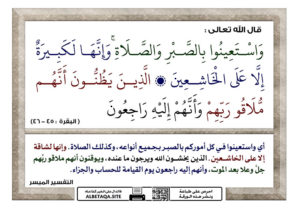 قال الله تعالى :
وَاسْتَعِينُوا بِالصَّبْرِ وَالصَّلَاةِ ۚ وَإِنَّهَا لَكَبِيرَةٌ
إِلَّا عَلَى الْخَاشِعِينَ ۞ الَّذِينَ يَظُنُّونَ أَنَّهُم
مُّلَاقُو رَبِّهِمْ وَأَنَّهُمْ إِلَيْهِ رَاجِعُونَ
(البقرة : ٤٥ - ٤٦)
أي واستعينوا في كل أموركم بالصبر بجميع أنواعه، وكذلك الصلاة. وإنها لشاقة
إلا على الخاشعين. الذين يخشون الله ويرجون ما عنده، ويوقنون أنهم ملاقو ربِّهم
جلَّ وعلا بعد الموت، وأنهم إليه راجعون يوم القيامة للحساب والجزاء.
التفسير الميسر
احرص على طباعة
ونشر هذه الورقة
ALBETAQA.SITE